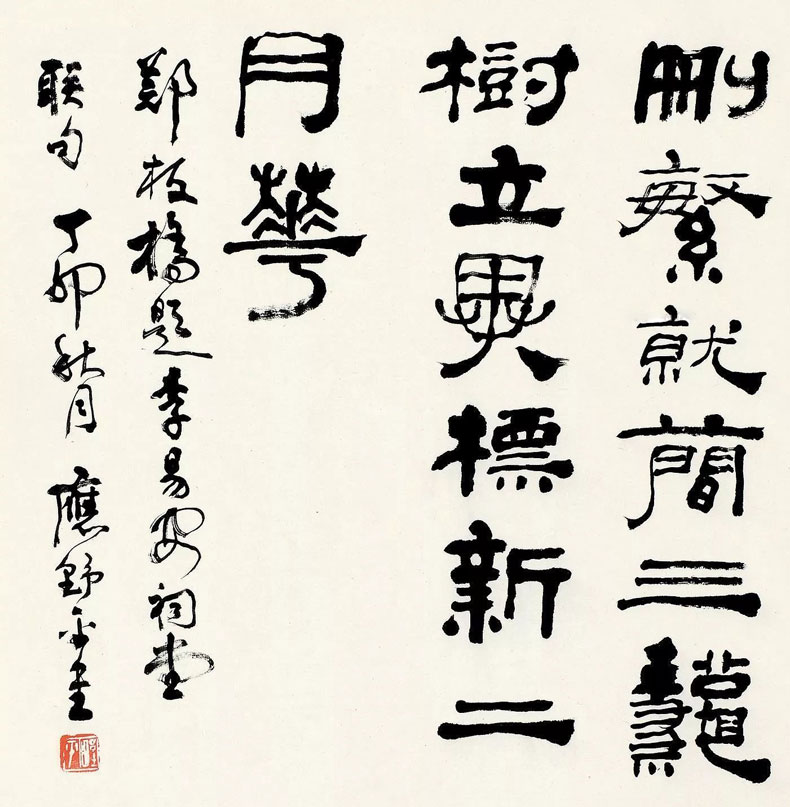 刪繁就簡三龝
樹立異標新二
月華
鄭板橋題李易安祠堂
聯句 丁卯秋月 應野平書